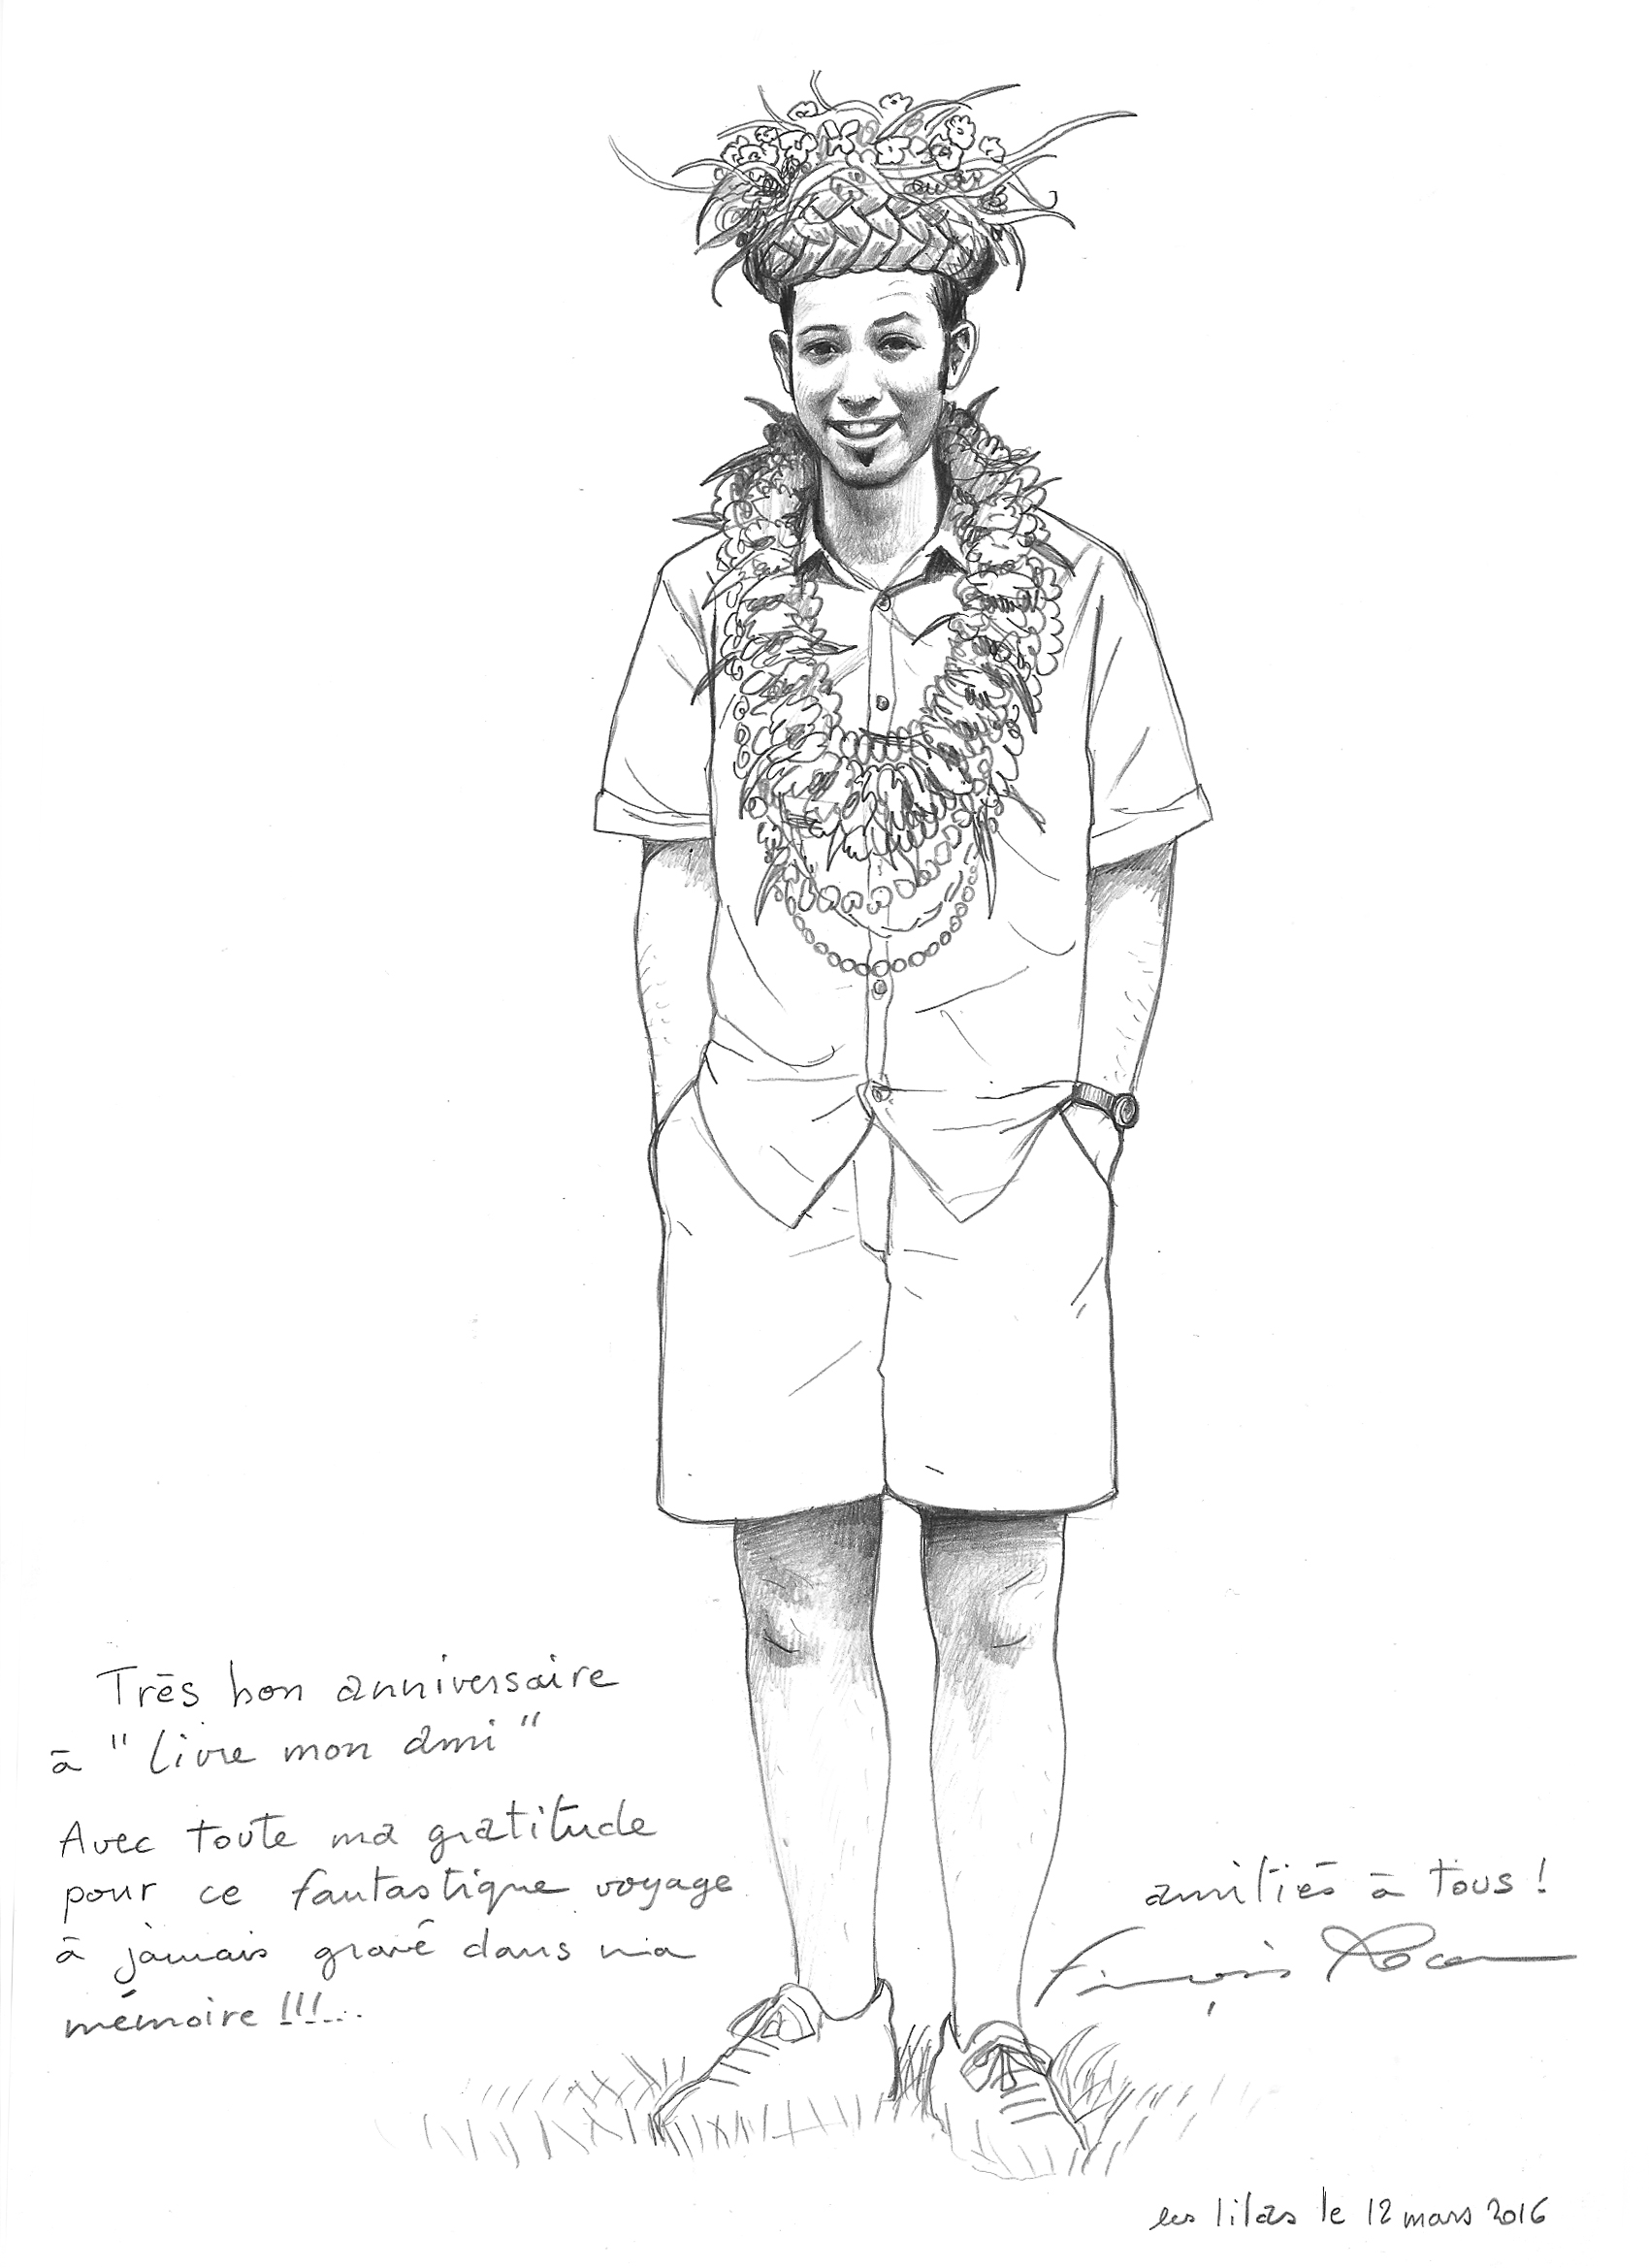 Très bon anniversaire
à "Livre mon ami"
Avec toute ma gratitude
pour ce fantastique voyage
à jamais gravé dans ma
mémoire !!!...
amitiés à tous !
François
les lilas le 12 mars 2016